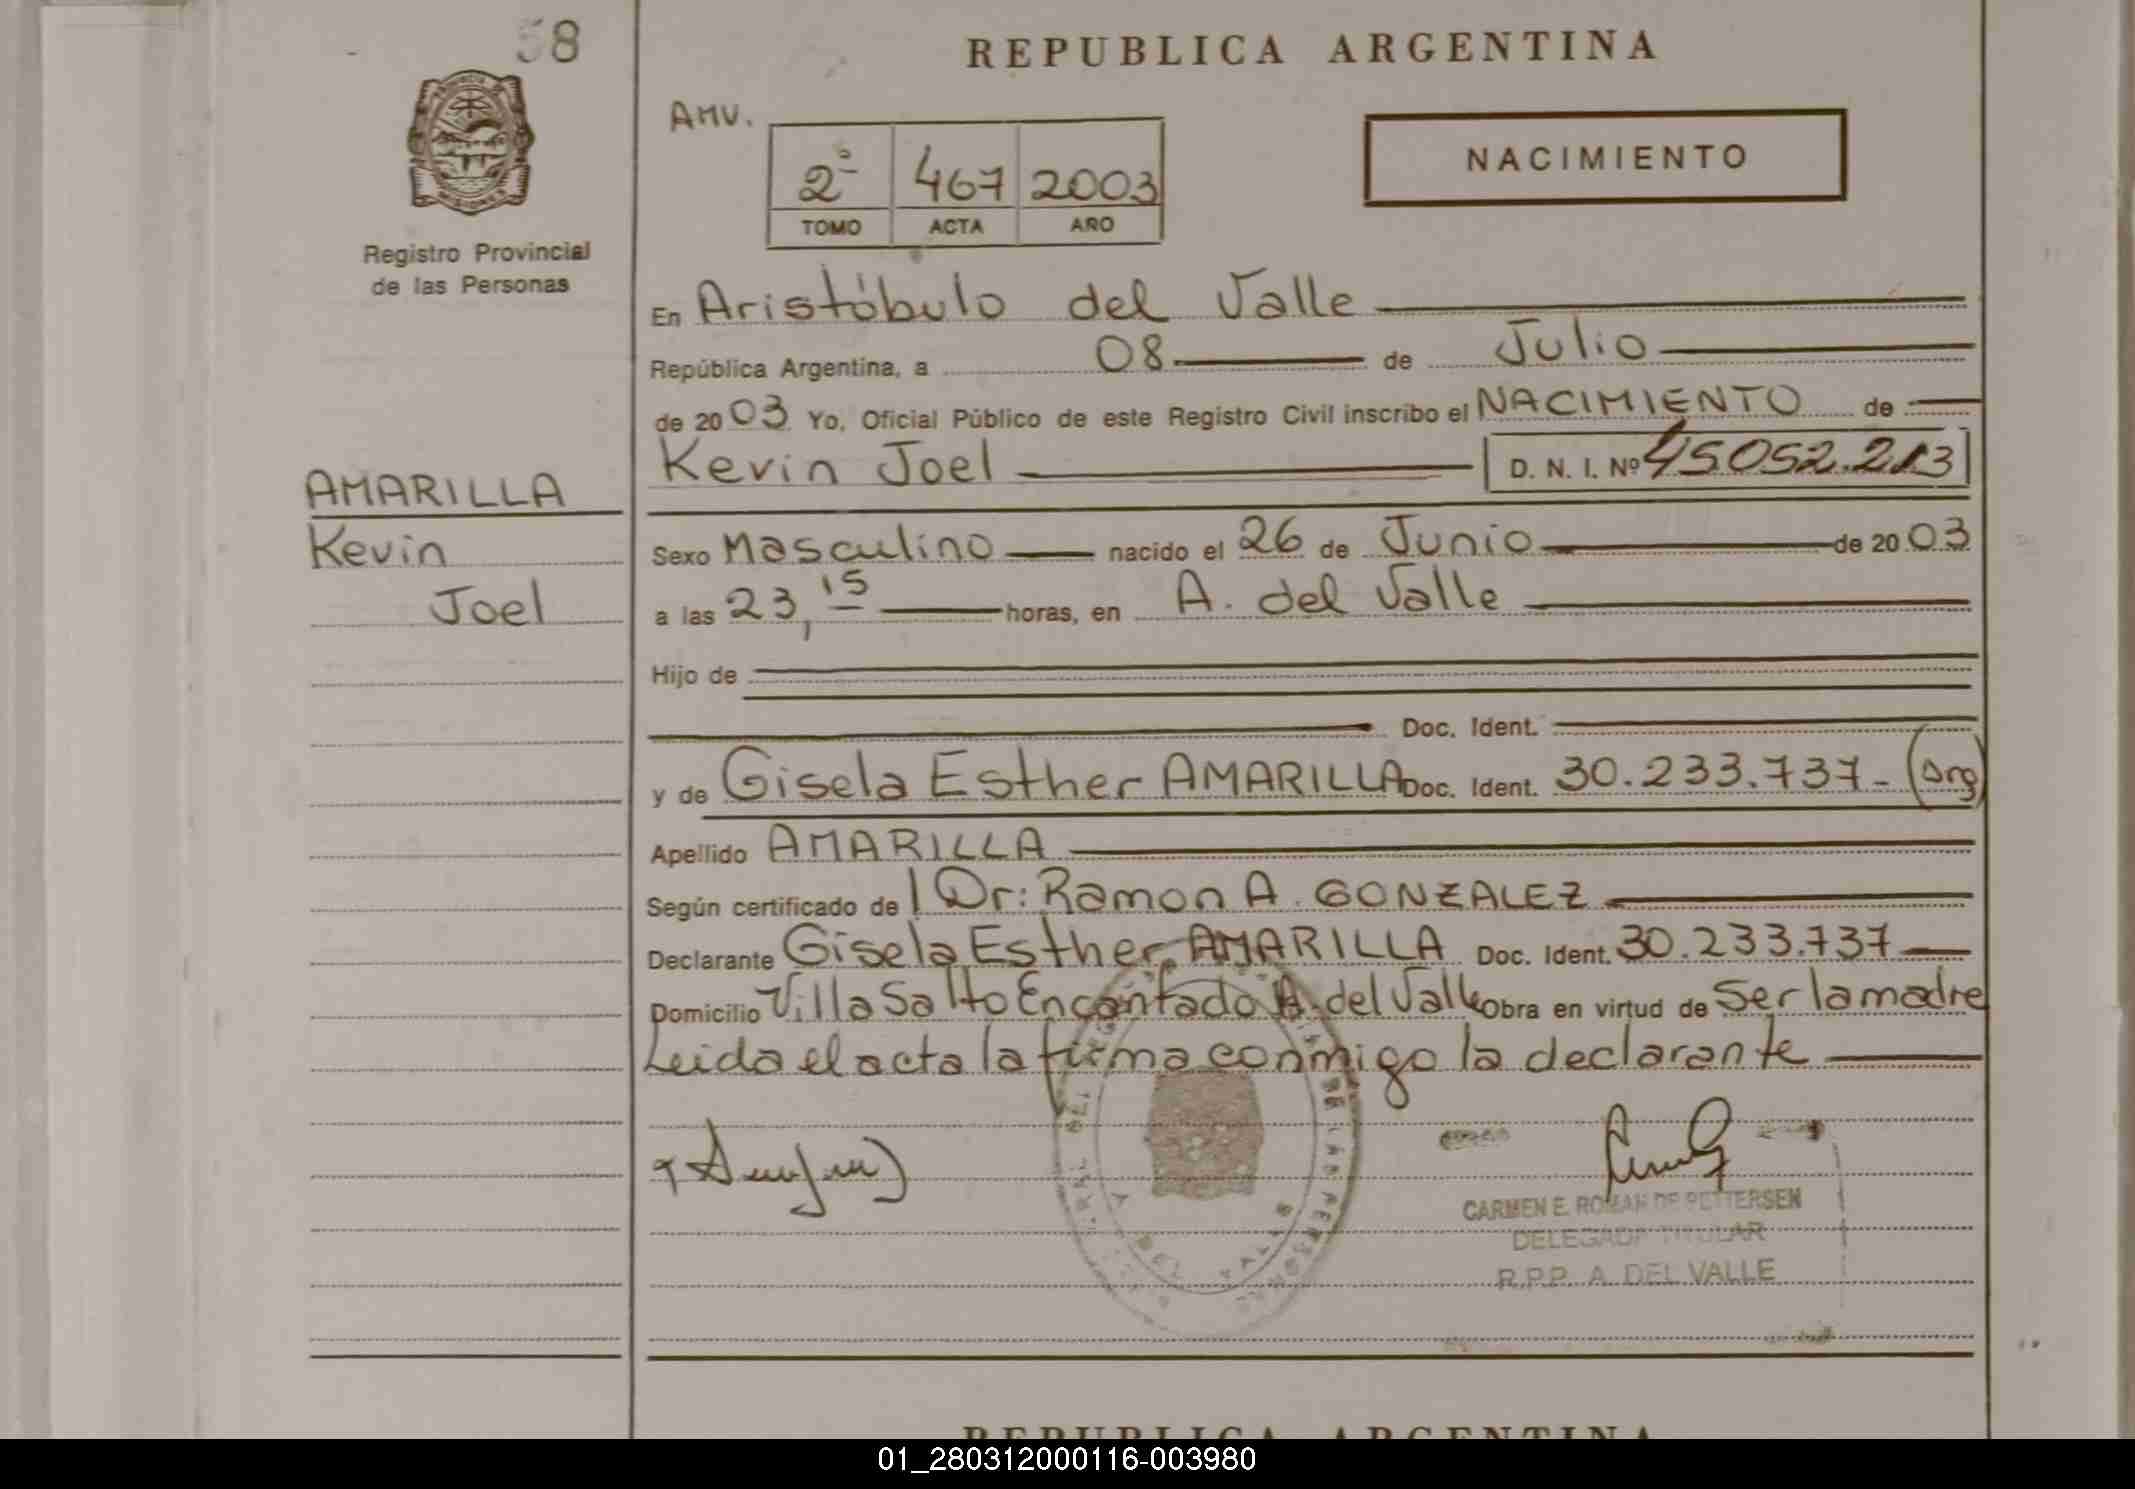 58
REPUBLICA ARGENTINA
AMV.
2º 467 2003
TOMO ACTA AÑO
NACIMIENTO
Registro Provincial
de las Personas
En Aristóbulo del Valle
República Argentina, a 08 de Julio
de 2003 Yo, Oficial Público de este Registro Civil inscribo el NACIMIENTO de
Kevin Joel D. N. I. Nº 45.052.213
AMARILLA
Kevin
Joel
Sexo Masculino nacido el 26 de Junio de 2003
a las 23,15 horas, en A. del Valle
Hijo de
Doc. Ident.
y de Gisela Esther AMARILLA Doc. Ident. 30.233.737- (Arg)
Apellido AMARILLA
Según certificado de l Dr: Ramon A. GONZALEZ
Declarante Gisela Esther AMARILLA Doc. Ident. 30.233.737
Domicilio Villa Salto Encantado A. del Valle Obra en virtud de Ser la madre
Leida el acta la firma conmigo la declarante
CARMEN E. ROMAN DE PETTERSEN
DELEGADA TITULAR
R.P.P. A. DEL VALLE
REPUBLICA ARGENTINA
01_280312000116-003980